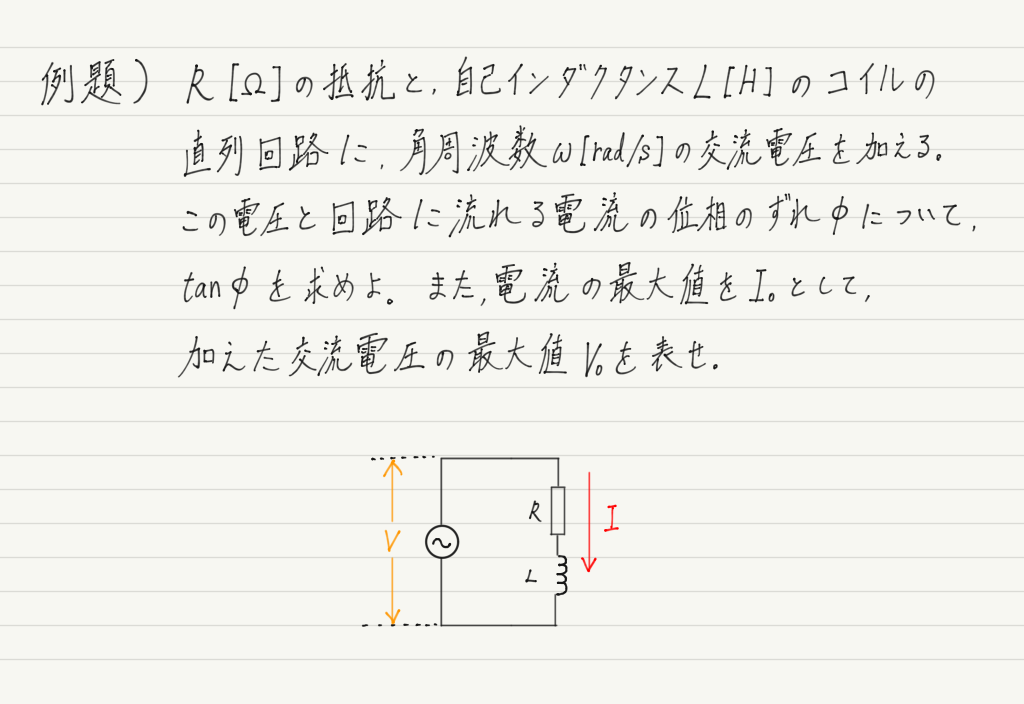 例題) R[Ω]の抵抗と,自己インダクタンスL[H]のコイルの
直列回路に,角周波数ω[rad/s]の交流電圧を加える。
この電圧と回路に流れる電流の位相のずれφについて,
tanφを求めよ。また,電流の最大値をI₀として,
加えた交流電圧の最大値V₀を表せ。
R
I
V
L